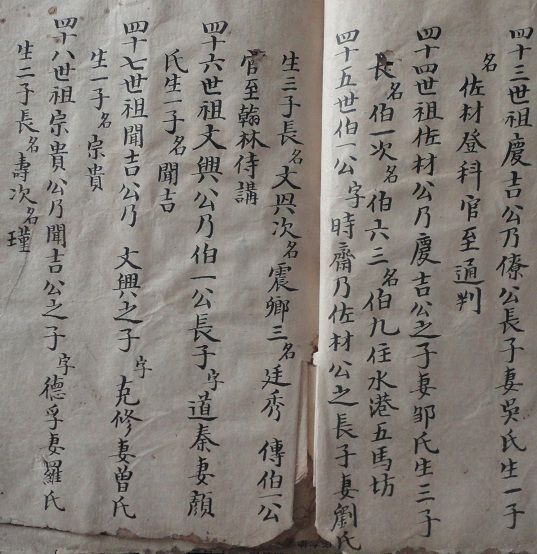 四十三世祖慶吉公乃僚公長子妻吳氏生一子
名佐材登科官至通判
四十四世祖佐材公乃慶吉公之子妻邹氏生三子
長名伯一次名伯六三名伯九住水港五馬坊
四十五世伯一公字時齋乃佐材公之長子妻劉氏
生三子長名文興次名震卿三名廷秀 傳伯一公
官至翰林侍講
四十六世祖文興公乃伯一公長子字道秦妻顏
氏生一子名聞吉
四十七世祖聞吉公乃 文興之子字克修妻曾氏
生一子名宗貴
四十八世祖宗貴公乃聞吉公之子字德孚妻羅氏
生二子長名壽次名瑾